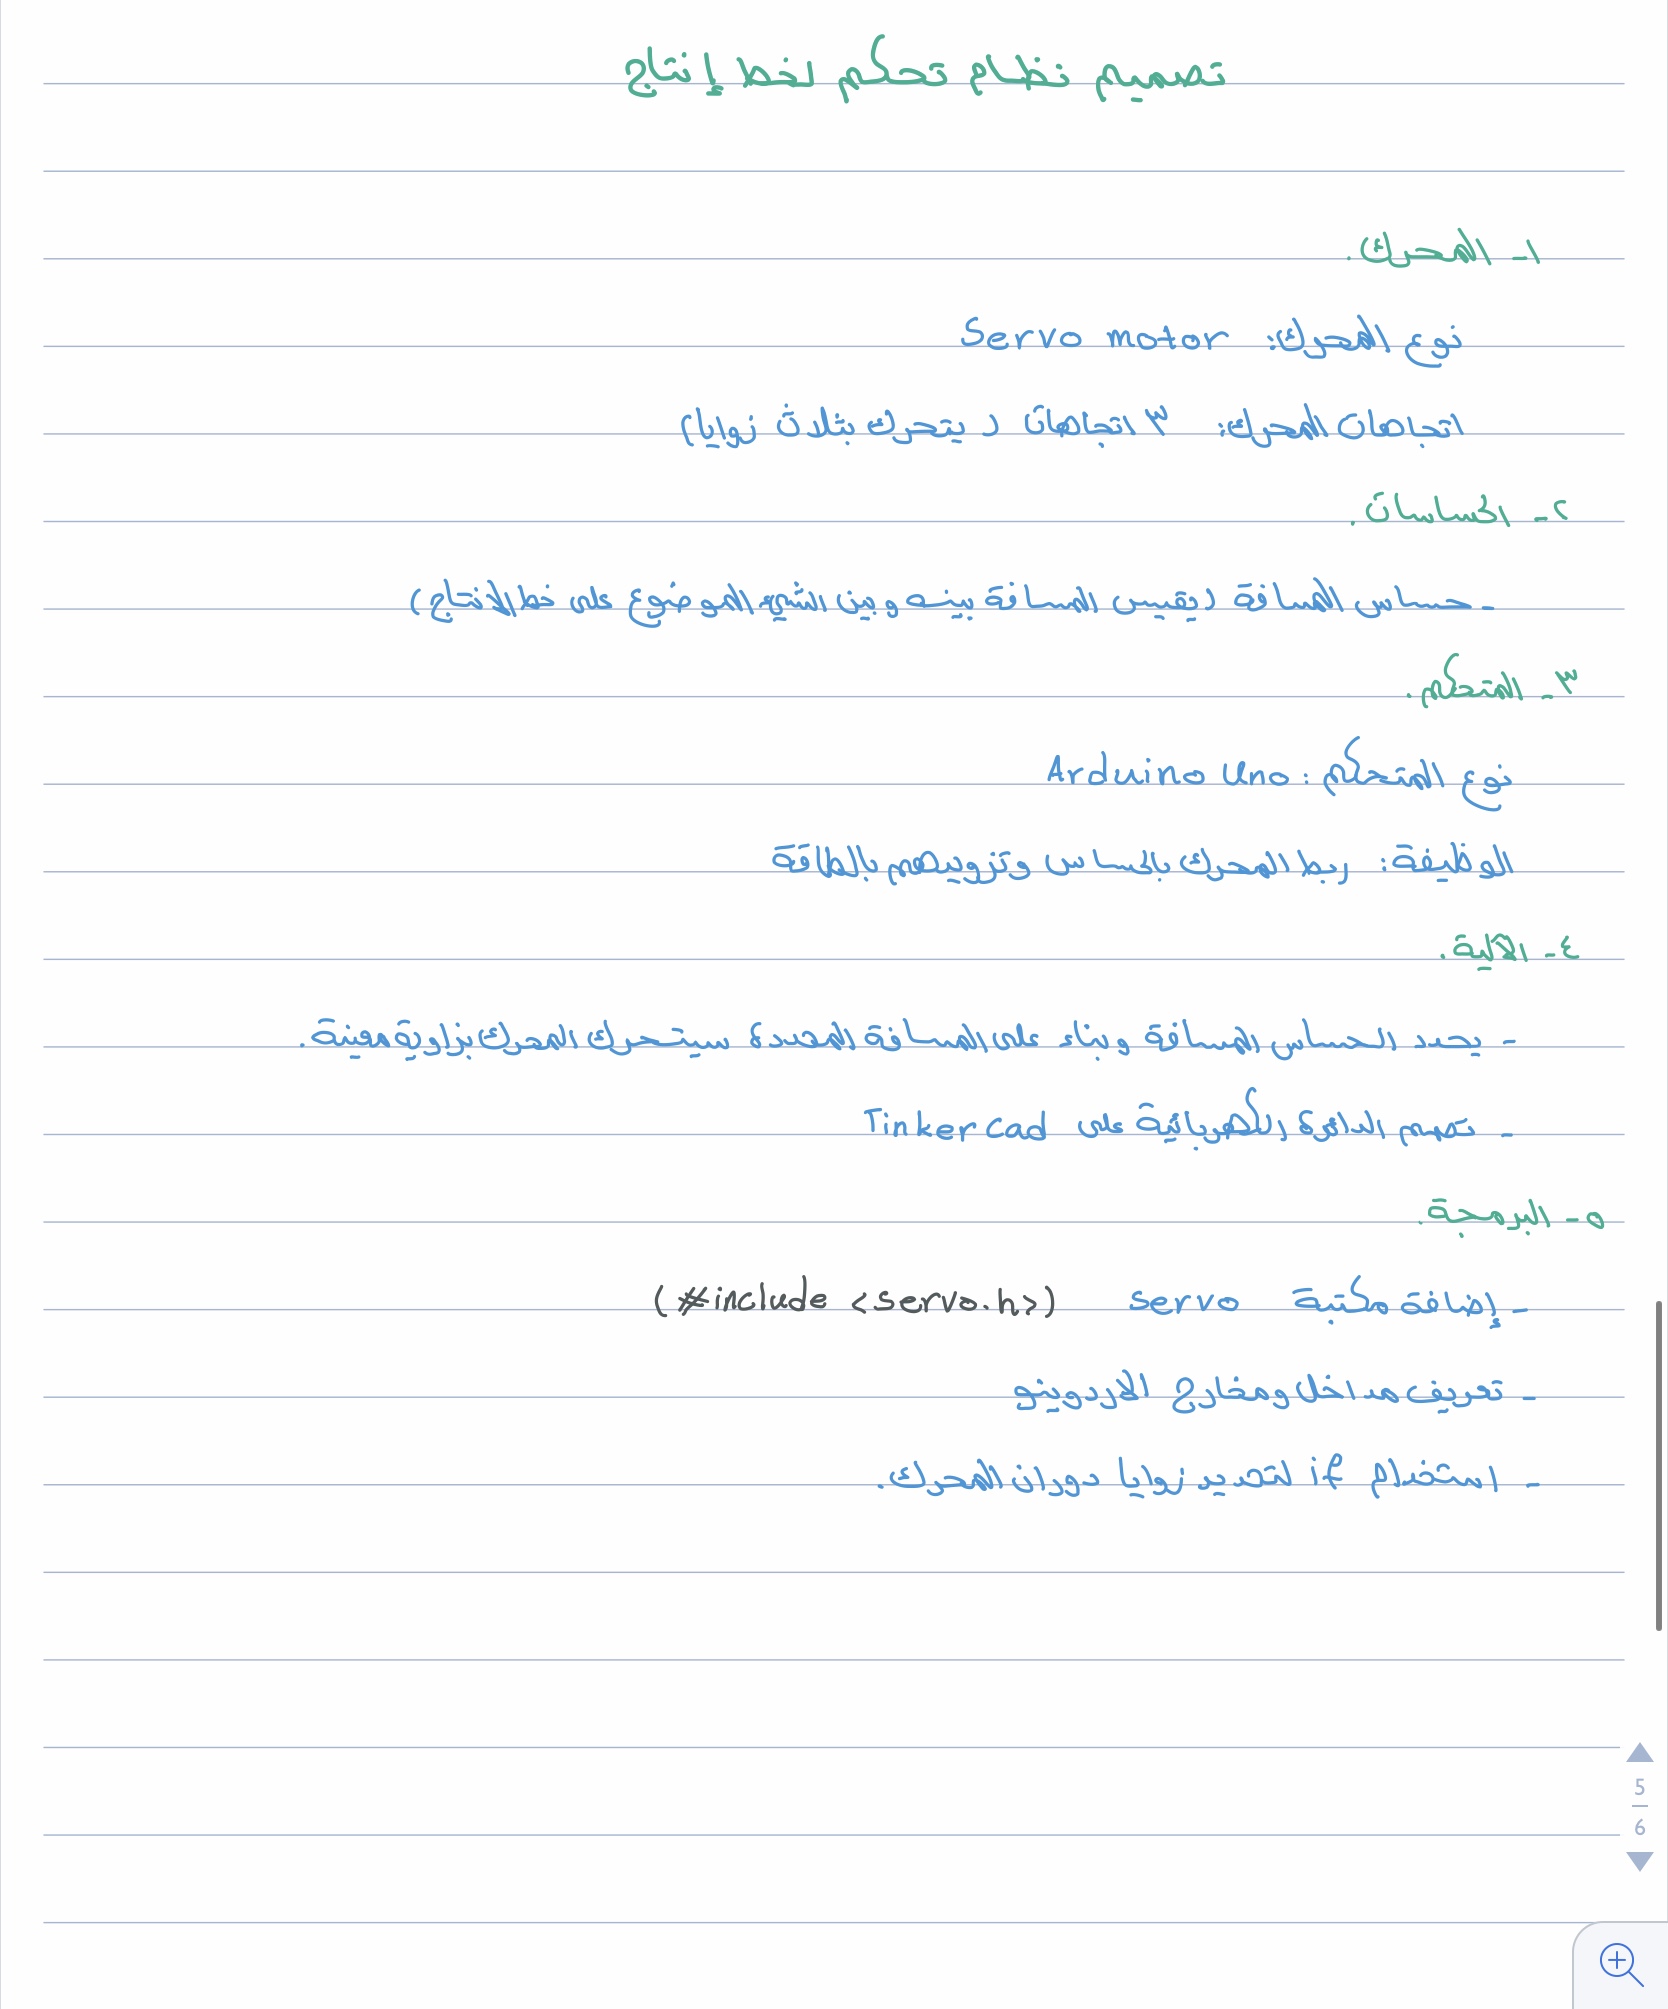 تصميم نظام تحكم لخط إنتاج
١- المحرك.
نوع المحرك: Servo motor
اتجاهات المحرك: ٣ اتجاهات ( يتحرك بثلاث زوايا )
٢- الحساسات.
- حساس المسافة ( يقيس المسافة بينه وبين الشيء الموضوع على خط الإنتاج )
٣- المتحكم.
نوع المتحكم : Arduino Uno
الوظيفة : ربط المحرك بالحساس وتزويدهم بالطاقة
٤- الآلية.
- يحدد الحساس المسافة وبناء على المسافة المحددة سيتحرك المحرك بزاوية معينة.
- تصمم الدائرة الكهربائية على Tinker cad
٥- البرمجة.
- إضافة مكتبة servo (#include <servo.h>)
- تعريف مداخل ومخارج الاردوينو
- استخدام if لتحديد زوايا دوران المحرك.
5
6